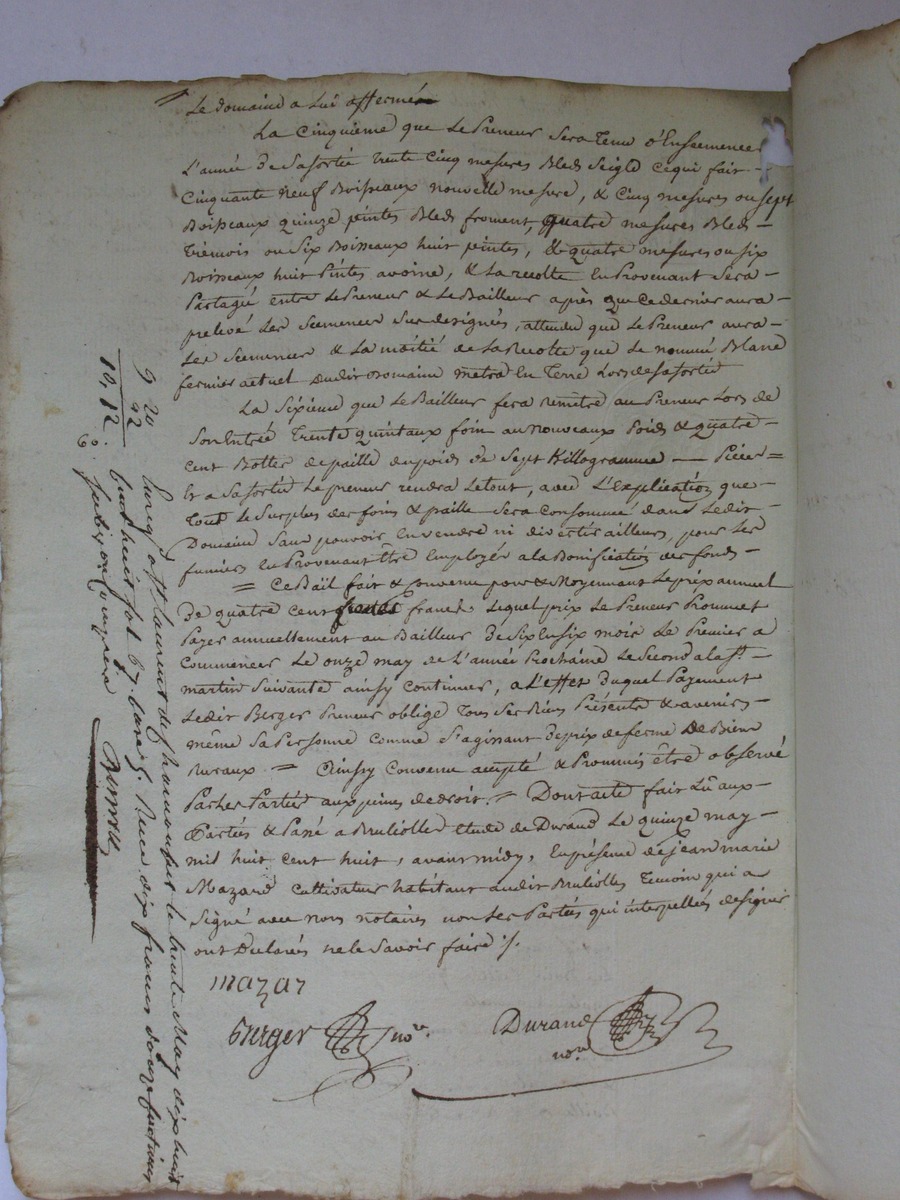 Le domaine a Lui affermé
La Cinquieme que Le Preneur Sera tenu d'Enssemencer
L'année de Sa sortié trente Cinq mesures Bled Seigle ce qui fait —
Cinquante neuf Boisseaux nouvelle mesure, & Cinq mesures ou sept
Boisseaux quinze peintes Bled froment, quatre mesures Bled —
trémois ou Six Boisseaux huit peintes, & quatre mesures ou six
Boisseaux huit Pintes avoine, & La recolte En Provenant Sera —
Partagée entre Le Preneur & Le Bailleur après que ce dernier aura —
prelevé Les Semences Sus designées, attendu que Le Preneur aura —
Les Semences & La moitié de La Recolte que Le nommé Blanc
fermier actuel dudit Domaine metra En Terre Lors de sa sortié
La Sixieme que Le Bailleur fera remetre au Preneur Lors de
Son Entré trente quintaux foin au nouveaux Poids & quatre —
Cent Bottes de paille du poids de Sept Killogrammes — Piece =
Et a Sa sortié Le preneur rendra Le tout, avec L'Explication que —
tout Le Surplus des foins & paille Sera Consommée dans Ledit —
Domaine Sans pouvoir En vendre ni divertir ailleurs, pour Les
fumiers En Provenant Etre Employer a La Bonification des fonds —
= Ce Bail fait & Convenu pour & Moyennant Le prix annuel
De quatre Cent francs Lequel prix Le Preneur Prommet
Payer annuellement au Bailleur De Six En Six mois Le Premier a
Commencer Le onze may de L'année Prochaine Le Second a La St —
martin Suivante ainsy Continuer, a L'effet duquel Payement
Ledit Berger Preneur oblige tous Ses Biens Présents & avenirs —
même Sa Personne Comme S'agissant de prix de ferme De Biens
Ruraux = Ainsy Convenu accepté & Prommis être observé
Par Les Partiés aux peines de droit. = Dont acte fait Lû aux —
Partiés & Passé a Brulïolles étude de Durand Le quinze may —
mil huit cent huit, avant midy, En présence de jean marie
Mazard Cultivateur habitant audit Brulïolles temoin qui a
Signé avec nous notaires non Les Partiés qui interpellées de signer
ont Declarés ne le Savoir faire ·/.
mazar
Berger nore.
Durand
nore
9 20
92
10, 12
60.
Enreg. a St laurent de chamousset le trente May dix huit
cent huit fol 67. Case 5. Recu dix francs douze centimes